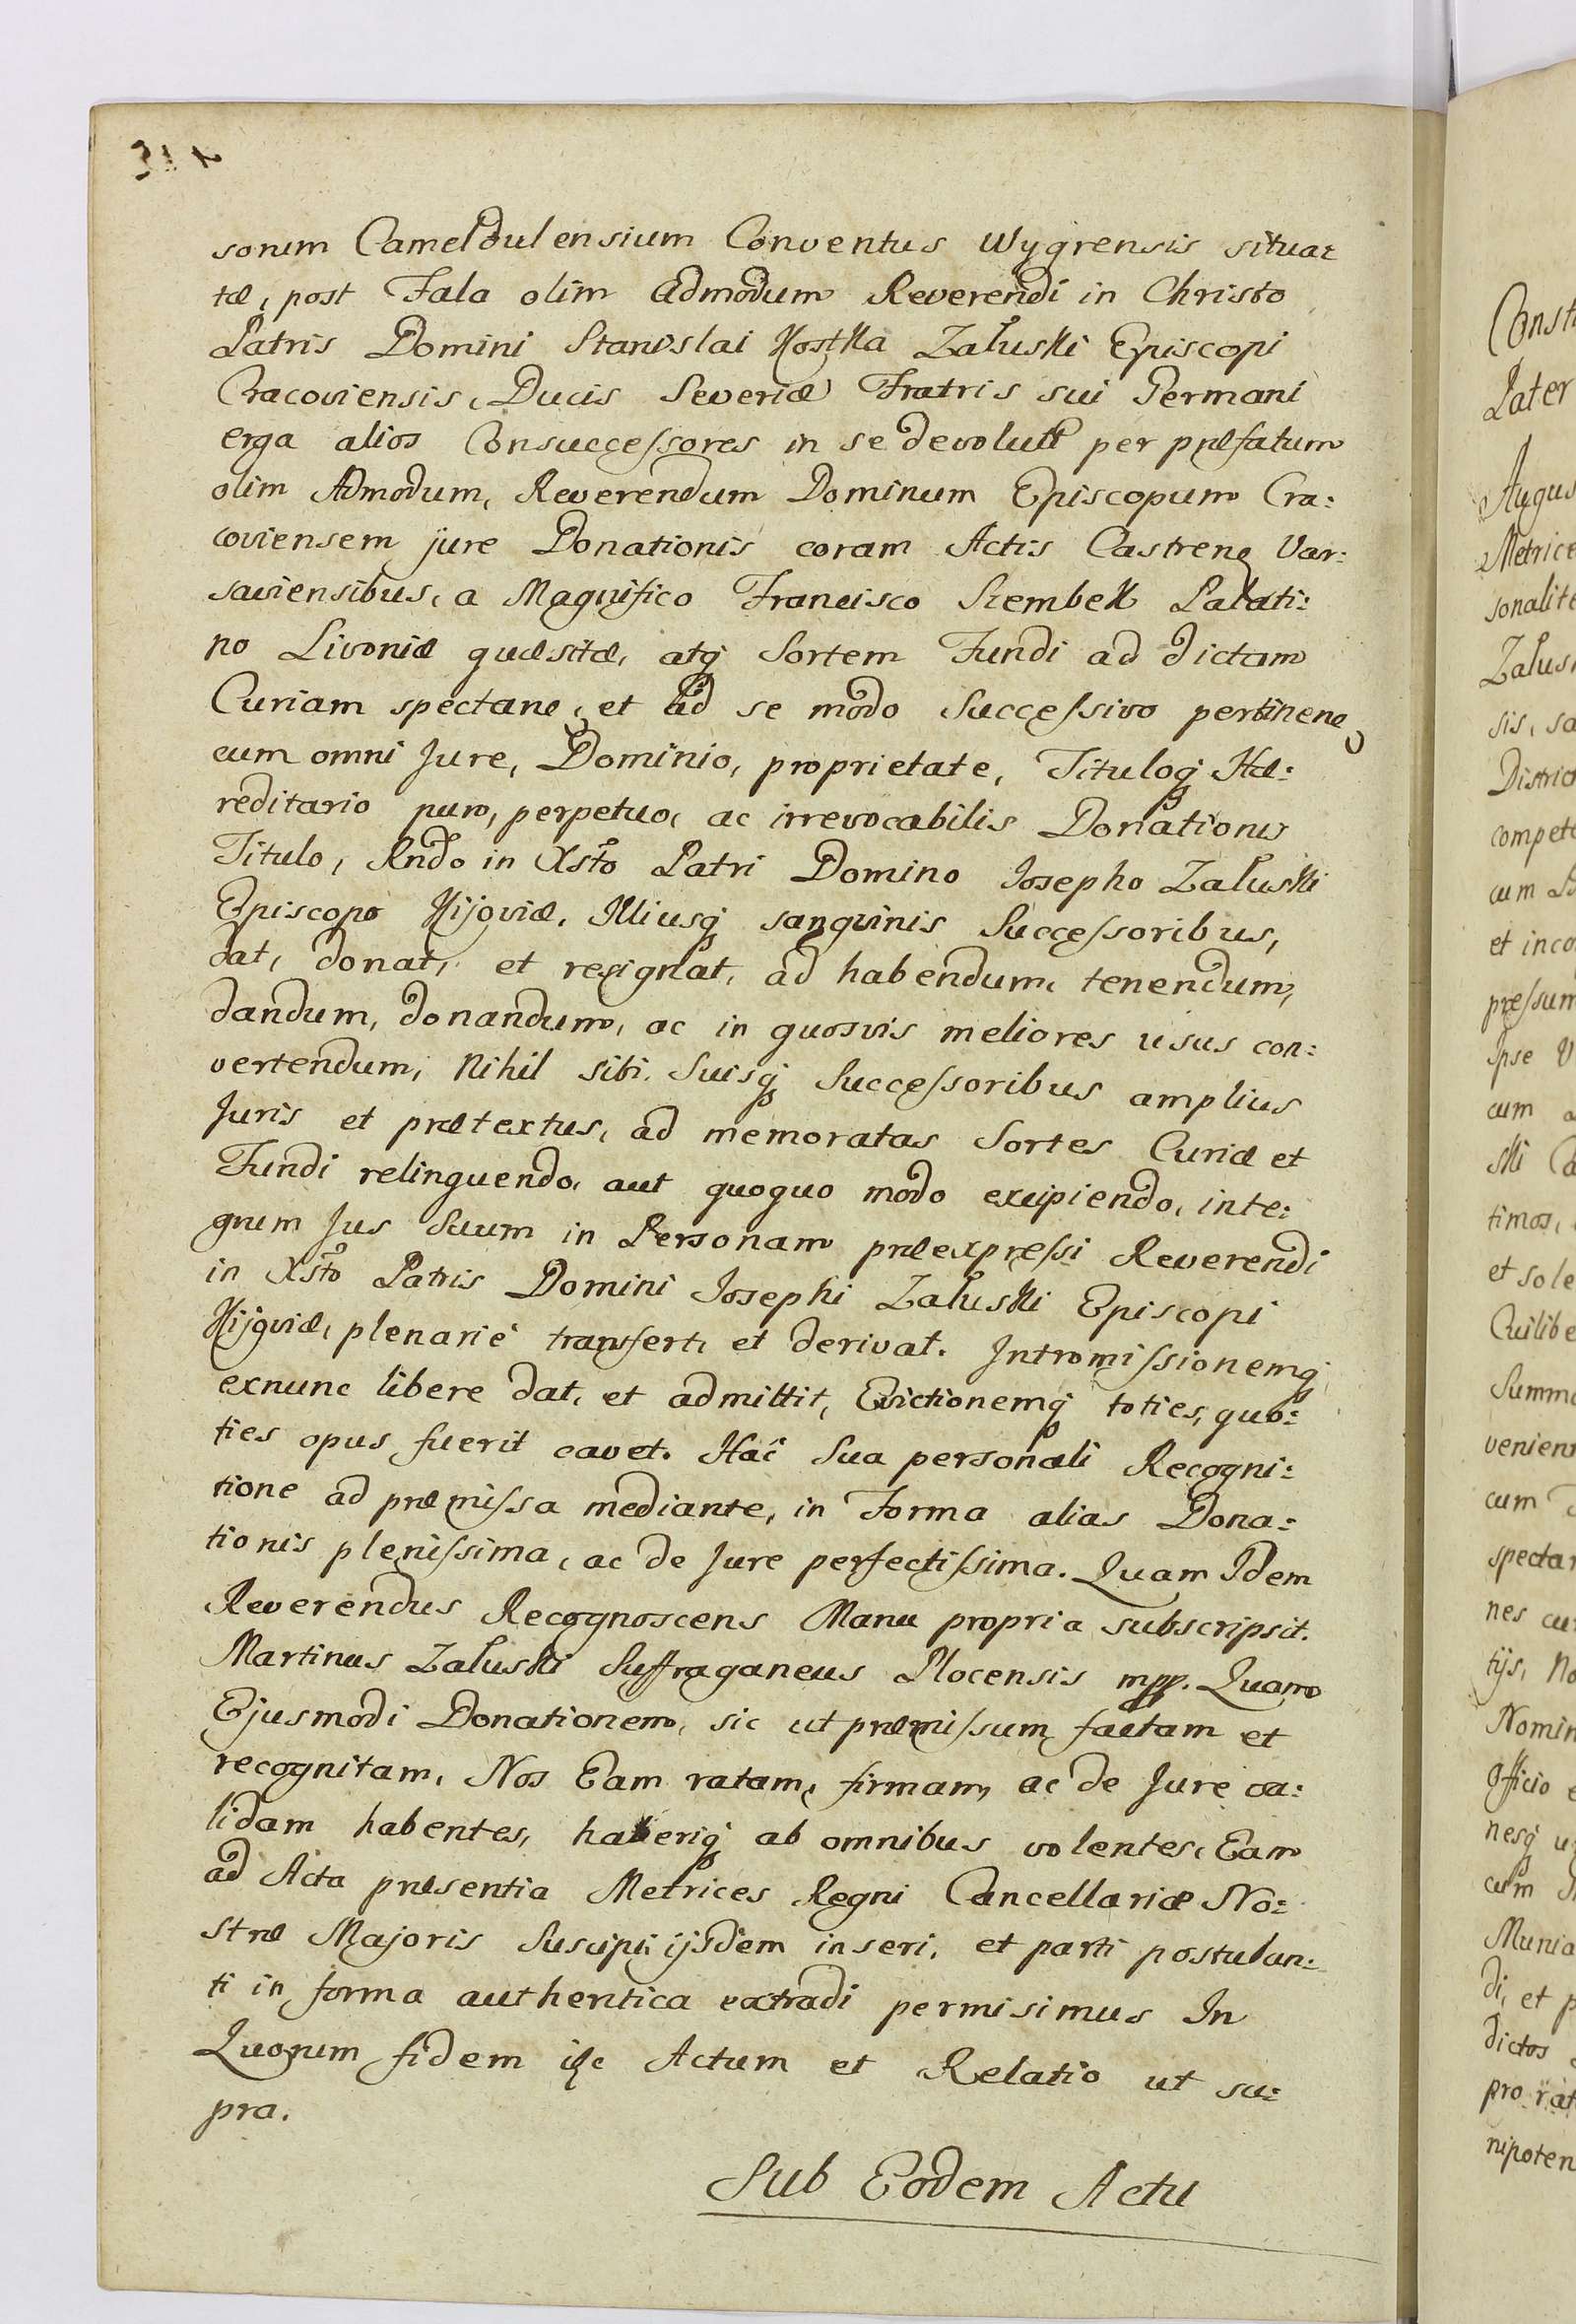 314
sorum Cameldulensium Conventus Wygrensis situa:
tæ, post Fala olim Admodum Reverendi in Christo
Patris Domini Stanislai Kostka Załuski Episcopi
Cracoviensis, Ducis Severiæ Fratris sui Germani
erga alios Consuccessores in se devolutt per præfatum
olim Admodum, Reverendum Dominum Episcopum Cra:
coviensem jure Donationis coram Actis Castren Var:
saviensibus, a Magnifico Francisco Szembek Palati:
no Livoniæ quæsitæ, atq Sortem Fundi ad dictam
Curiam spectane, et ad se modo Successivo pertinene
cum omni Jure, Dominio, proprietate, Tituloq Hæ:
reditario puro, perpetuo, ac irrevocabilis Donationis
Titulo, Rndo in Xsto Patri Domino Josepho Załuski
Episcopo Kijoviæ, Illiusq sanguinis Successoribus,
dat, donat, et resignat, ad habendum, tenendum,
dandum, donandum, ac in quosvis meliores usus con:
vertendum, Nihil sibi Suisq Successoribus amplius
Juris et prætextus, ad memoratas Sortes Curiæ et
Fundi relinquendo, aut quoquo modo excipiendo, inte:
grum Jus Suum in Personam præexpressi Reverendi
in Xsto Patris Domini Josephi Załuski Episcopi
Kijoviæ, plenariè transfert, et derivat. Intromissionemq
exnunc libere dat, et admittit, Evictionemq toties, quo:
ties opus fuerit cavet. Hac Sua personali Recogni:
tione ad præmissa mediante, in Forma alias Dona:
tionis plenissima, ac de Jure perfectissima. Quam Idem
Reverendus Recognoscens Manu propria subscripsit.
Martinus Załuski Suffraganeus Plocensis mpp. Quam
Ejusmodi Donationem, sic ut præmissum factam et
recognitam, Nos Eam ratam, firmam, ac de Jure va:
lidam habentes, haberiq ab omnibus volentes, Eam
ad Acta præsentia Metrices Regni Cancellariæ No:
stræ Majoris Suscipi, ijsdem inseri, et parti postulan:
ti in forma authentica extradi permisimus In
Quorum fidem etc Actum et Relatio ut su:
pra.
Sub Eodem Actu
Const
Pater
Augus
Metrice
sonalite
Załus
sis, sa
District
compete
cum
et inco
pressum
Ipse V
cum a
ski
timos,
et sole
Cuilibe
Summa
venien
cum
spectan
nes cu
tijs, No
Nomin
Officio e
nesq u
cum
Munia
di, et p
dictos
pro rat
nipoten